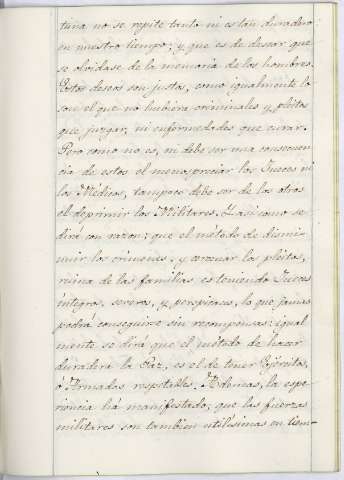 tuna no se repite tanto ni es tan duradero
en nuestro tiempo; y que es de desear que
se olvidase de la memoria de los hombres.
Estos deseos son justos, como igualmente lo
son el que no hubiera criminales y pleitos
que juzgar, ni enfermedades que curar.
Pero como no es, ni debe ser una consecuen
cia de estos el menospreciar los Jueces ni
los Médicos, tampoco debe ser de los otros
el deprimir los Militares. Y asi como se
dirá con razon; que el método de dismi
nuir los crimenes, y cercenar los pleitos,
ruina de las familias es teniendo Jueces
integros, severos, y perspicaces, lo que jamas
podrá conseguirse sin recompensas: igual
mente se dirá que el método de hacer
duradera la Paz, es el de tener Egércitos,
ó Armadas respetables. Ademas, la espe
riencia há manifestado; que las fuerzas
militares son tambien utilísimas en tiem-